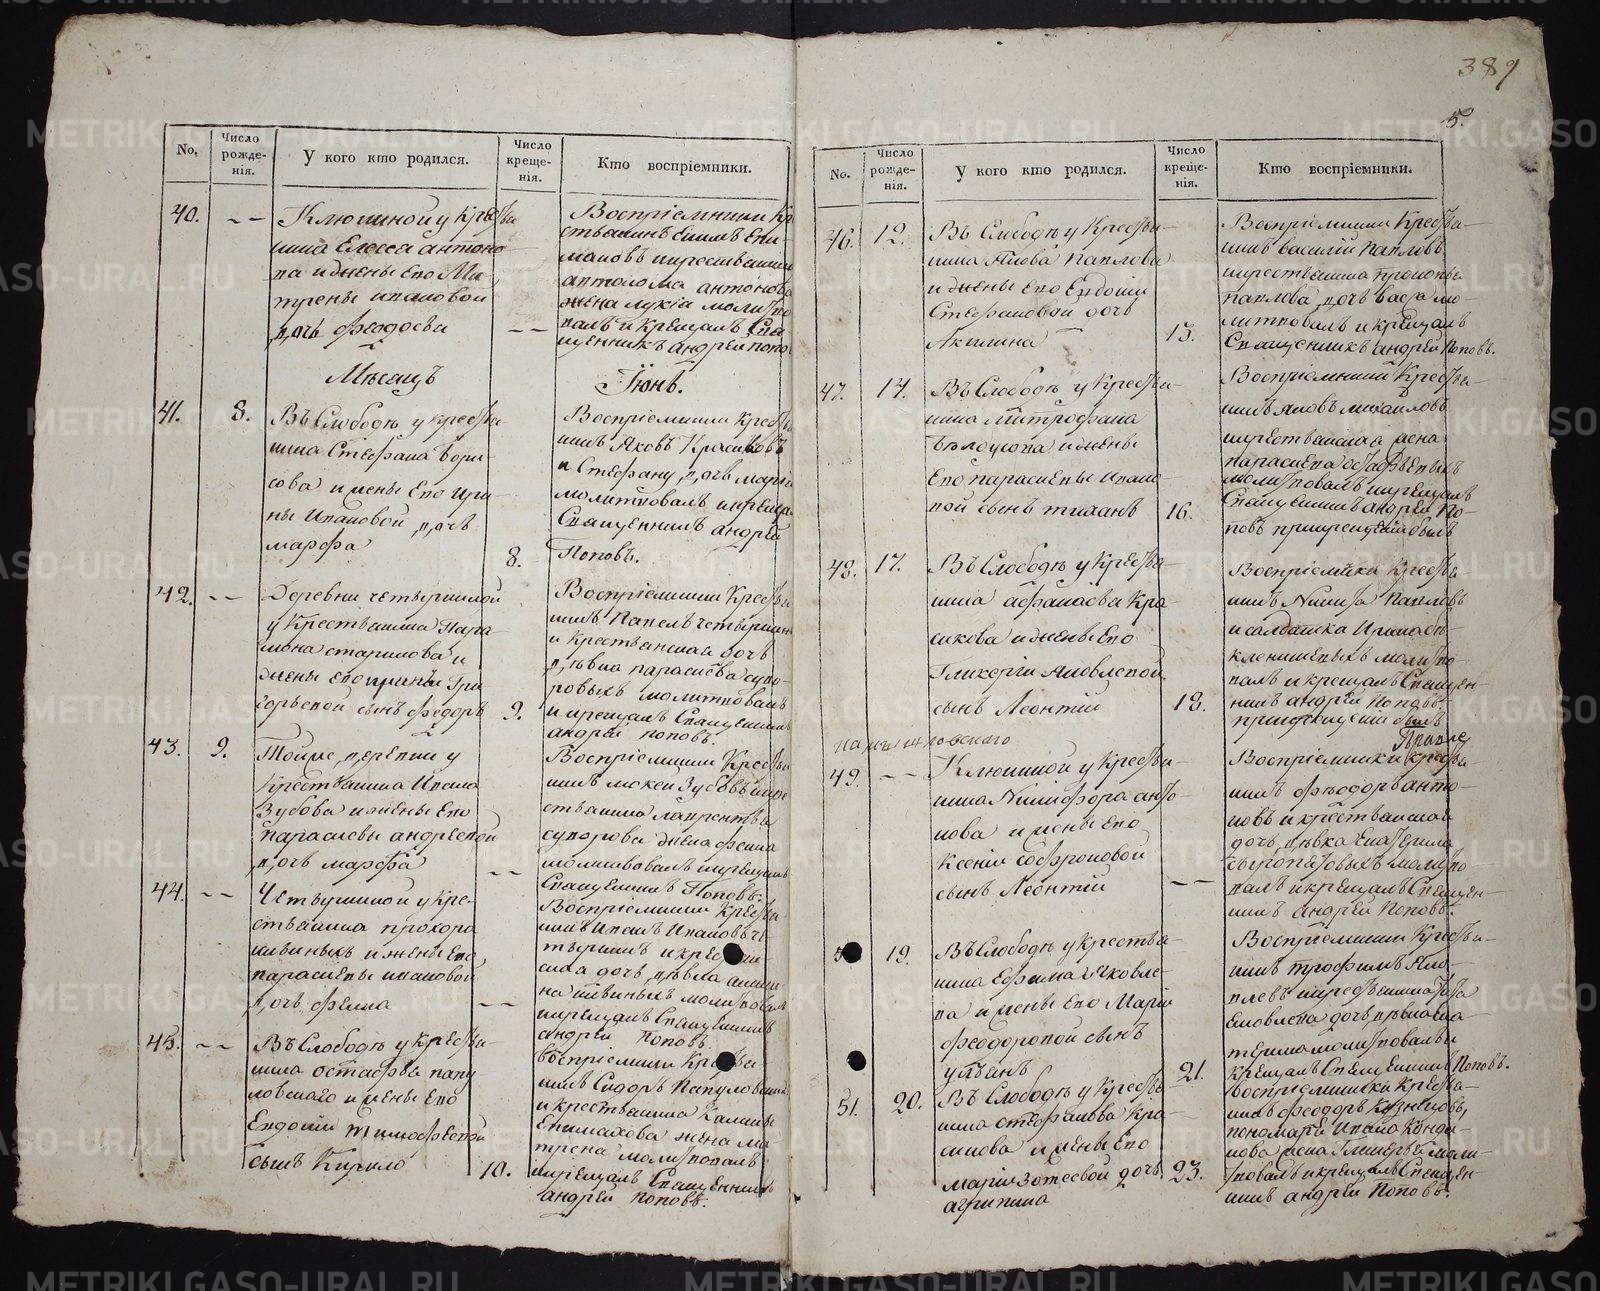 389
5.
No.
Число рожде- нія.
У кого кто родился.
Число креще- нія.
Кто воспріемники.
40. – –
Ключиной у кресть
нина Елесея антоно
ва и жены его Ма
трены ивановой
дочь феодосья
– –
Воспріемники кр
антонова
жена лукіа молитво
валъ и крещалъ Свя
щенникъ андрей попо
Мѣсяцъ
Іюнь.
41. 8.
Въ Слободѣ у кресть
нина Стефана Бори
сова и жены его Ири
ны Ивановой дочь
марфа
8.
Воспріемники кресть
нинъ Яковъ Красиковъ
и Стефану дочь марія
молитвовалъ и креща
Священникъ андрей
Поповъ.
42. – –
Деревни четверкиной
у Крестьянина Пара
мона старикова и
жены его ирины Гри
горьевой сынъ федоръ
9.
Воспріемники Кресть
нинъ Павелъ четверкин
и крестьянская дочь
дѣвка парасковья суво
ровыхъ молитвовалъ
и крещалъ Священникъ
андрей поповъ.
43. 9.
деревни у
крестьянина Ивана
Зубова и жены его
парасковьи андреевой
дочь марфа
– –
Воспріемники Кресть
нинъ мокей Зубовъ и кре
стьянина лаврентья
суворова жена фекла
молитвовалъ и крещалъ
Священникъ Поповъ.
44. – –
Четверкиной у кре-
стьянина прохора
и жены его
парасковьи ивановой
дочь фекла
– –
Воспріемники кресть
нинъ Иванъ Ивановъ че
дочь дѣвка
молитвовалъ
и крещалъ Священникъ
андрей Поповъ.
45. – –
Въ Слободѣ у кресть-
нина остафья папу
ловскаго и жены его
Евдокіи Тимофеевой
сынъ Кирило
10.
Воспріемники Кресть
нинъ Сидоръ Папуловскій
и крестьянина
Епимахова жена ма-
трена молитвовалъ
и крещалъ Священникъ
андрей Поповъ.
No.
Число рожде- нія.
У кого кто родился.
Число креще- нія.
Кто воспріемники.
46. 12.
Въ Слободѣ у Кресть-
нина Якова Павлова
и жены его Евдокіи
Стефановой дочь
Акилина
13.
Воспріемники Кресть-
нинъ василій Павловъ
и крестьянина прокопья
павлова дочь васса мо-
литвовалъ и крещалъ
Священникъ андрей Поповъ.
47. 14.
Въ Слободѣ у Кресть-
нина Митрофана
Бѣлоусова и жены
Его парасковьи Ивано-
вой сынъ тиханъ
16.
Воспріемники Кресть-
нинъ яковъ михайловъ
и крестьянская жена
молитвовалъ и крещалъ
Священникъ андрей По-
повъ при крещеніи былъ
48. 17.
Въ Слободѣ у Кресть-
нина афанасья Кра-
сикова и жены Его
Гликеріи Яковлевой
сынъ Леонтій
18.
Воспріемники Кресть
нинъ Никита Павловъ
и салдатка Ирина
молитво-
валъ и крещалъ Священ-
никъ андрей Поповъ.
при крещеніи былъ
49. – –
Ключиной у Кресть-
нина Никифора анто-
нова и жены Его
Ксеніи Софроновой
сынъ Леонтій
– –
Воспріемники кресть-
нинъ фѣодоръ анто-
новъ и крестьянская
дочь дѣвка Екатерина
молитво-
валъ и крещалъ Священ-
никъ андрей Поповъ.
19.
Въ Слободѣ у крестья-
нина Ефима Яковле-
ва и жены Его Маріи
Феодоровой сынъ
ульянъ
21.
Воспріемники Кресть-
нинъ трофимъ Яко-
влевъ и крестьянина
Яковлева дочь дѣвка Ека-
терина молитвовалъ и
крещалъ Священникъ Поповъ.
51. 20.
Въ Слободѣ у Кресть
нина стефанова Кра-
сикова и жены Его
маріи Зотеевой дочь
агрипина
23.
Воспріемники Кресть-
нинъ феодоръ Кузнецовъ
пономаря Ивана Конда-
кова жена Гликерья моли-
твовалъ и крещалъ Священ-
никъ андрей Поповъ.